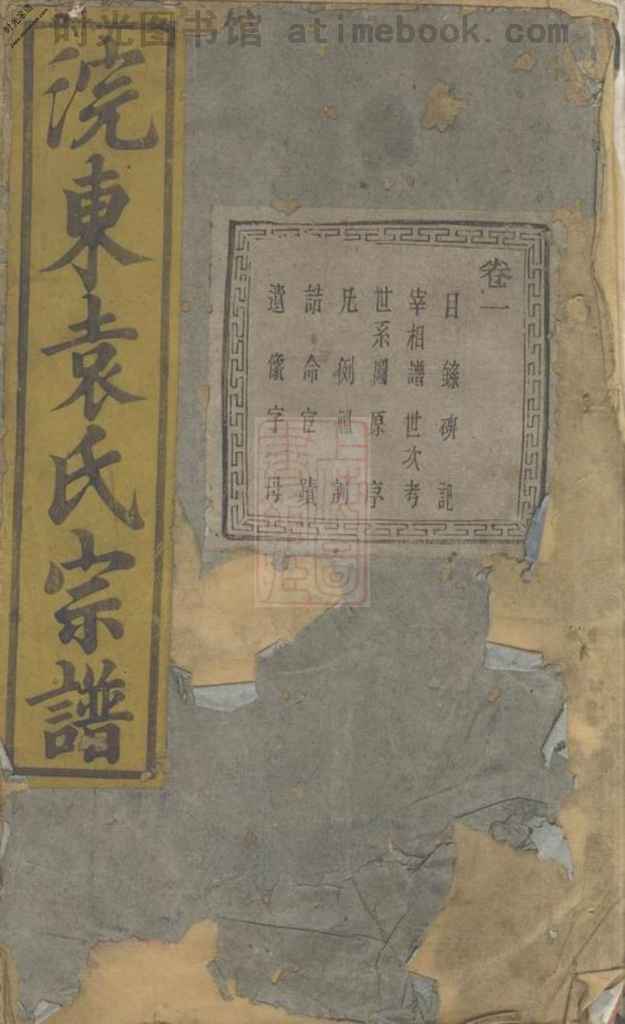 时光图书馆 atimebook.com
浣東袁氏宗譜
卷一
目錄碑記
宰相譜世次考
世系圖原序
凡例祖制
誥命宦蹟
遺像字母